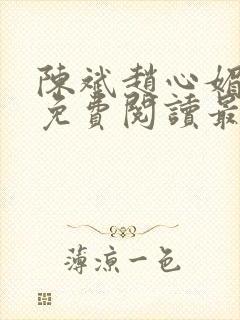 陳斌趙心媚
免費閱讀最
薄涼一色